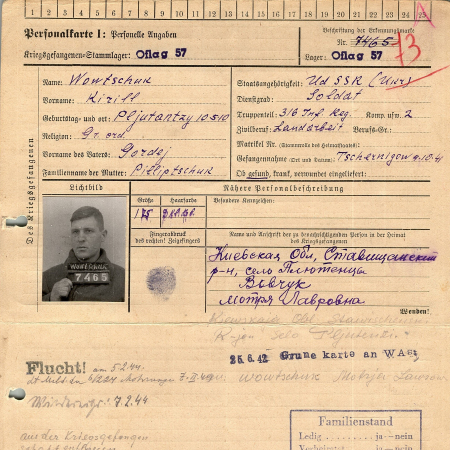 1 2 3 4 5 6 7 8 9 10 11 12 13 14 15 16 17 18 19 20 21 22 23 24 25
A
Personalkarte I: Personelle Angaben
Kriegsgefangenen-Stammlager: Oflag 57
Beschriftung der Erkennungsmarke
Nr. 7465
73
Lager: Oflag 57
Des Kriegsgefangenen
Name: Wowtschuk
Vorname: Kirill
Geburtstag und -ort: Pljutantzy 10 5 10
Religion: Gr. ord.
Vorname des Vaters: Gordej
Familienname der Mutter: Pilliptschuk
Staatsangehörigkeit: UdSSR (Ukr.)
Dienstgrad: Soldat
Truppenteil: 316 Inf. Reg. Komp. usw. 2
Zivilberuf: Landarbeit Berufs-Gr.:
Matrikel Nr. (Stammrolle des Heimatstaates):
Gefangennahme (Ort und Datum): Tschernigow 9.10.41
Ob gesund, krank, verwundet eingeliefert:
Lichtbild
Nähere Personalbeschreibung
Größe
Haarfarbe
Besondere Kennzeichen:
175
Fingerabdruck
des rechten! Zeigefingers
Name und Anschrift der zu benachrichtigenden Person in der Heimat
des Kriegsgefangenen
WOWTSCHUK
7465
Киевская Обл, Ставищанский
р-н, село Плютенцы
Вовчук
Мотря Лавровна
Wenden!
25.6.42 Grüne karte an WASt
Flucht! am 5.2.44.
Wowtschuk
7.2.44
aus der Kriegsgefangen
Familienstand
Ledig ja — nein
Verheiratet ja — nein